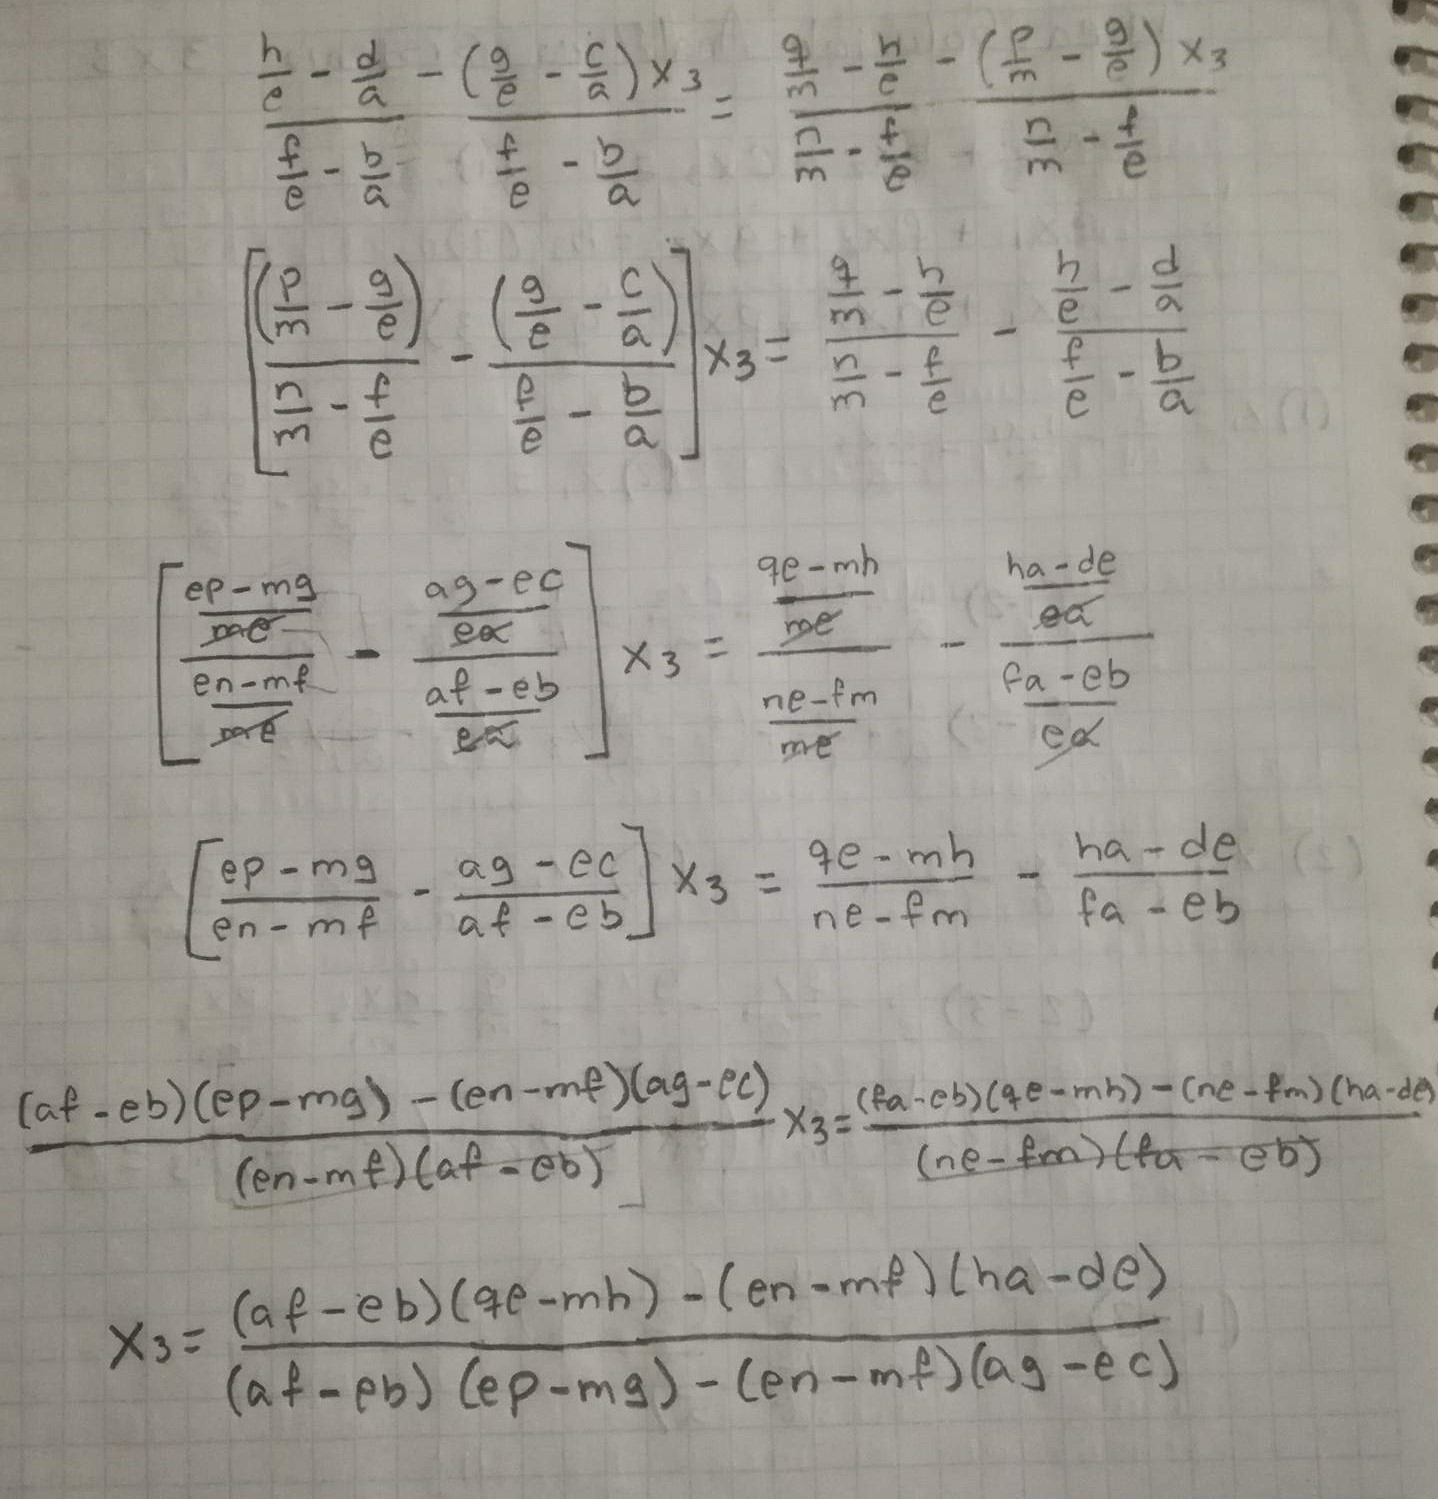 \frac{\frac{h}{e} - \frac{d}{a}}{\frac{f}{e} - \frac{b}{a}} - \frac{(\frac{g}{e} - \frac{c}{a}) x_3}{\frac{f}{e} - \frac{b}{a}} = \frac{\frac{q}{m} - \frac{h}{e}}{\frac{n}{m} - \frac{f}{e}} - \frac{(\frac{p}{m} - \frac{g}{e}) x_3}{\frac{n}{m} - \frac{f}{e}}
[\frac{(\frac{p}{m} - \frac{g}{e})}{\frac{n}{m} - \frac{f}{e}} - \frac{(\frac{g}{e} - \frac{c}{a})}{\frac{f}{e} - \frac{b}{a}}] x_3 = \frac{\frac{q}{m} - \frac{h}{e}}{\frac{n}{m} - \frac{f}{e}} - \frac{\frac{h}{e} - \frac{d}{a}}{\frac{f}{e} - \frac{b}{a}}
[\frac{\frac{ep-mg}{me}}{\frac{en-mf}{me}} - \frac{\frac{ag-ec}{ea}}{\frac{af-eb}{ea}}] x_3 = \frac{\frac{qe-mh}{me}}{\frac{ne-fm}{me}} - \frac{\frac{ha-de}{ea}}{\frac{fa-eb}{ea}}
[\frac{ep-mg}{en-mf} - \frac{ag-ec}{af-eb}] x_3 = \frac{qe-mh}{ne-fm} - \frac{ha-de}{fa-eb}
\frac{(af-eb)(ep-mg)-(en-mf)(ag-ec)}{(en-mf)(af-eb)} x_3 = \frac{(fa-eb)(qe-mh)-(ne-fm)(ha-de)}{(ne-fm)(fa-eb)}
x_3 = \frac{(af-eb)(qe-mh)-(en-mf)(ha-de)}{(af-eb)(ep-mg)-(en-mf)(ag-ec)}